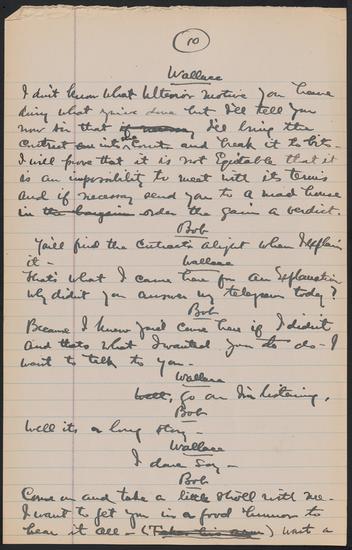 10
Wallace
I don't know what Ulterior motive you have
doing what you've done but I'll tell you
now Sir that if necessary I'll bring the
Contract into the Court and break it to bits -
I will prove that it is not Equitable that it
is an impossibility to meet with its terms
and if necessary send you to a mad house
in the bargain order the gain a verdict.
Bob
You'll find the Contracts alright when I explain
it -
Wallace
That's what I came here for an Explanation
why didn't you answer my telegram today?
Bob
Because I knew you'd come here if I didn't
and thats what I wanted you to do - I
want to talk to you -
Wallace
Well, go on I'm listening,
Bob
Well its a long story -
Wallace
I dare say -
Bob
Come on and take a little stroll with me -
I want to get you in a good humor to
hear it all - (Takes his arm) wait a